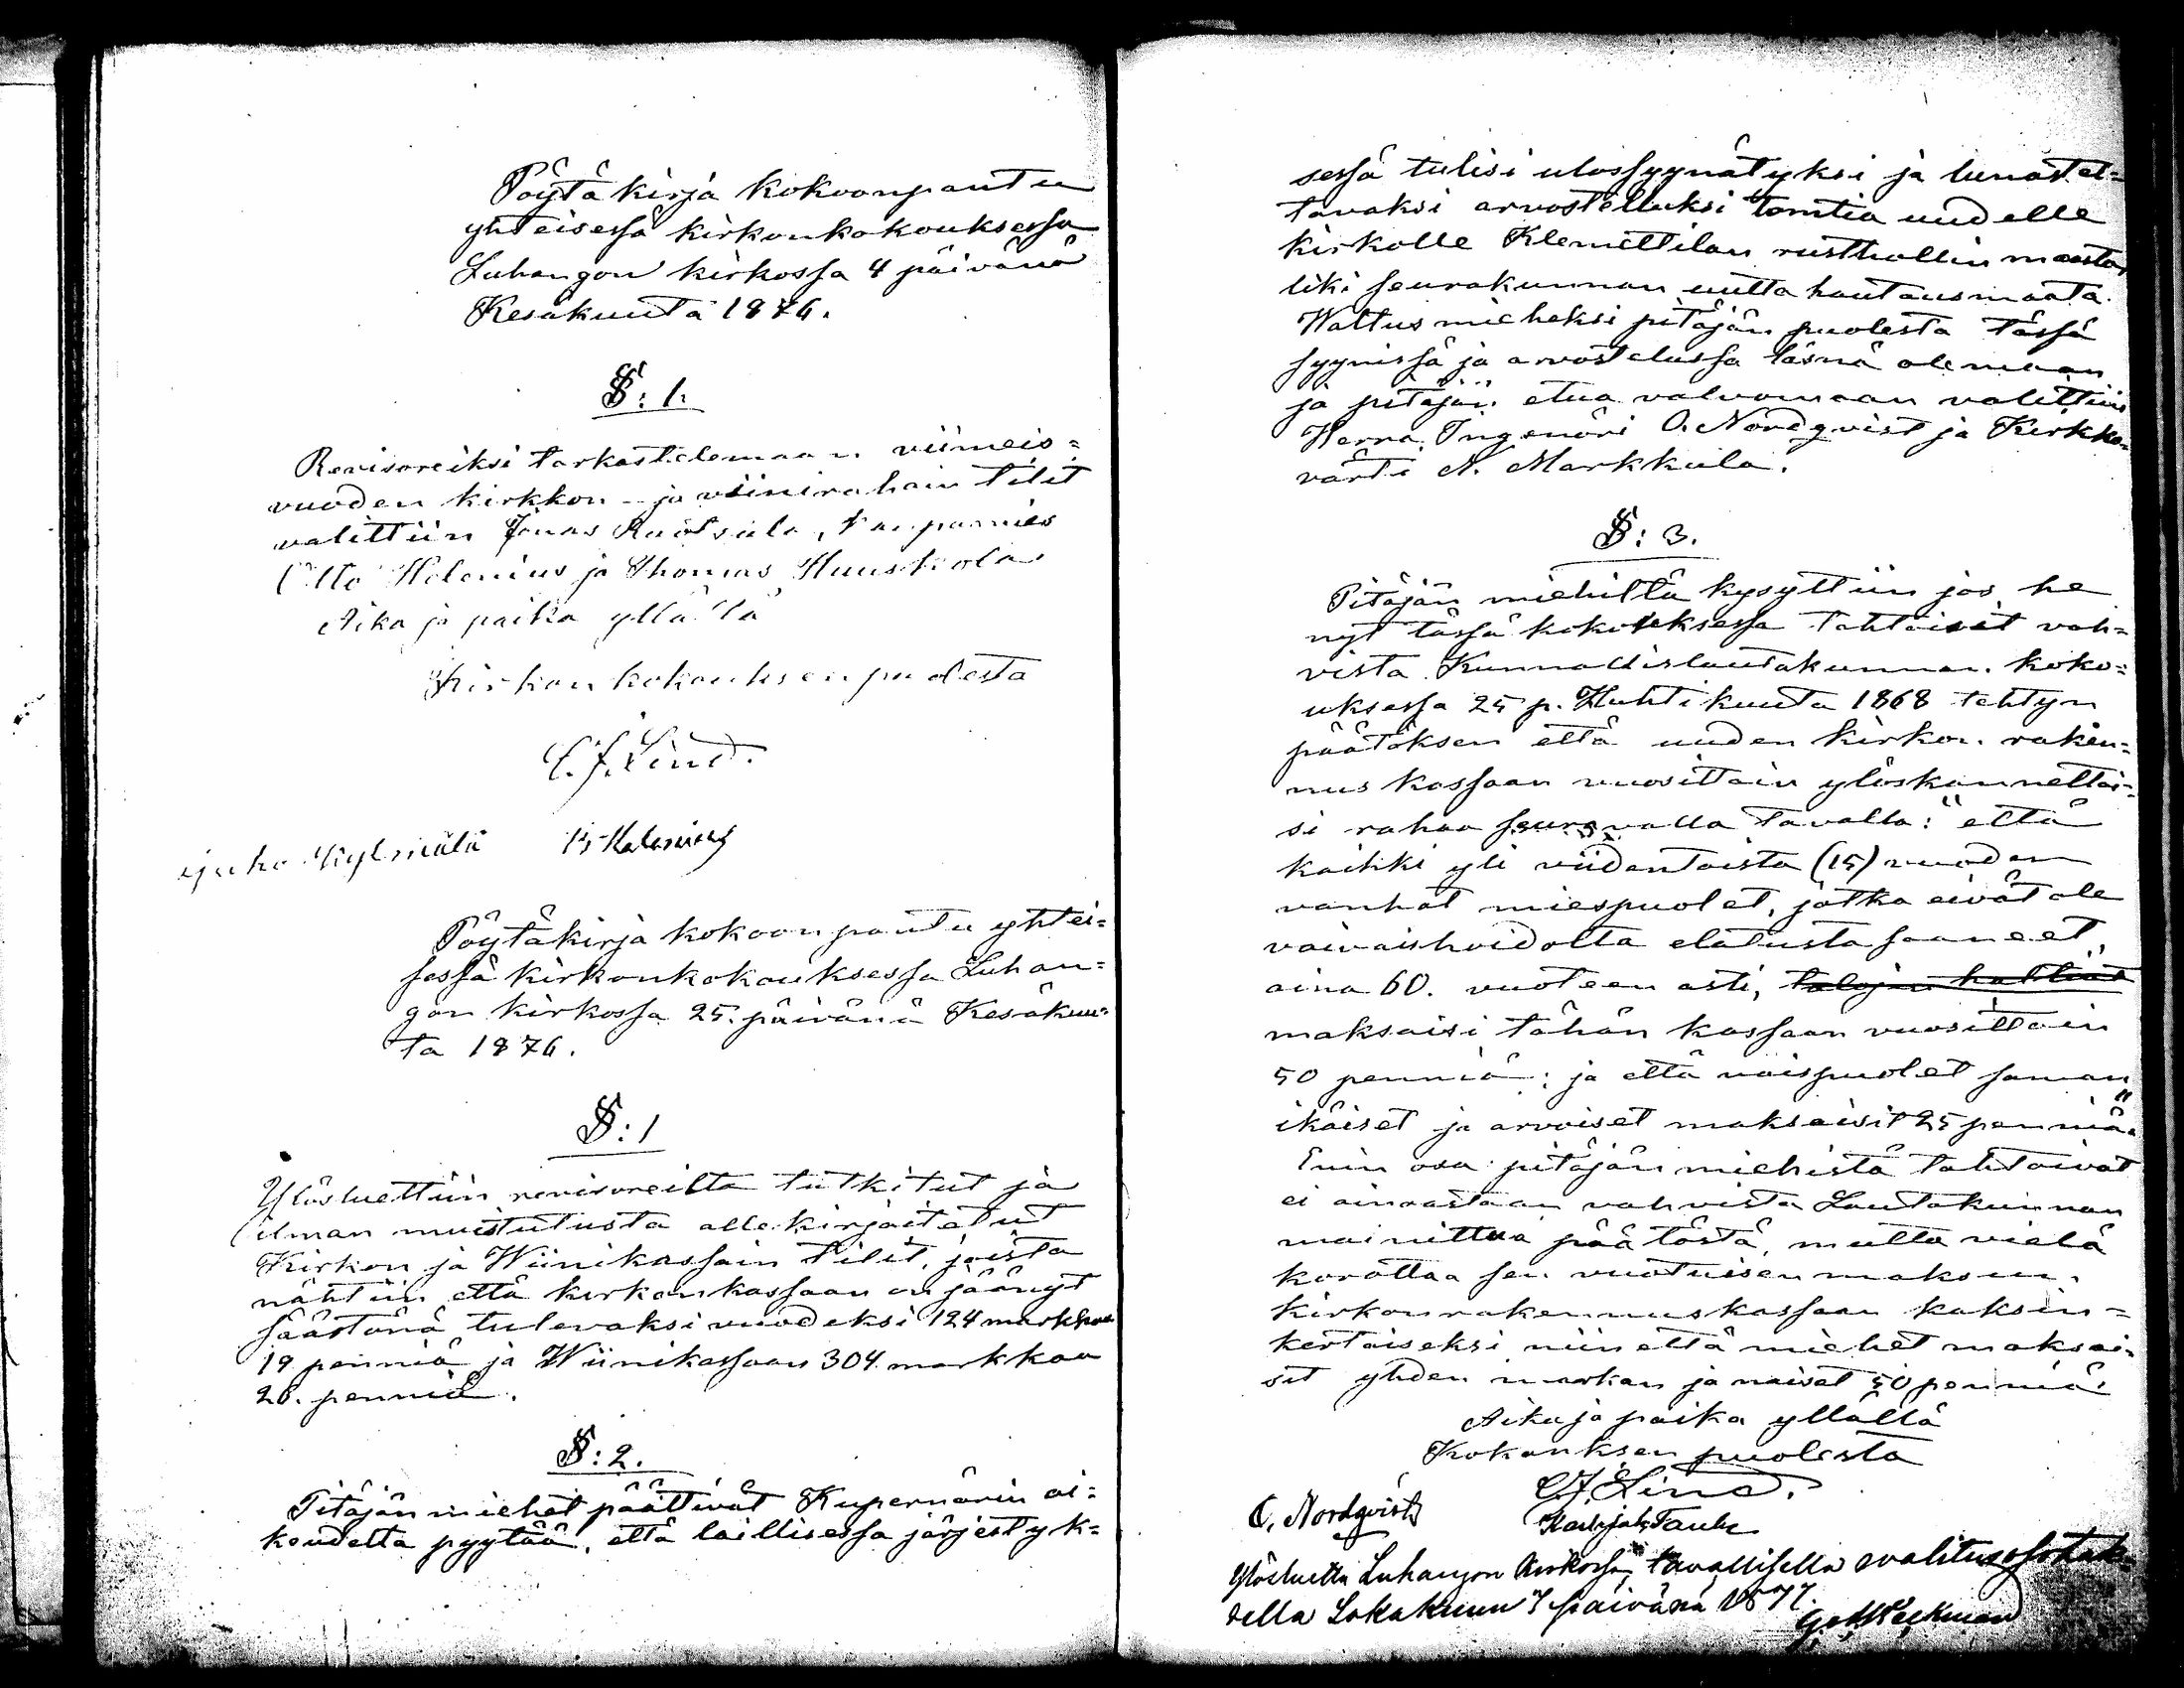 Pöytäkirja kokoonpantu
yhteisessä kirkonkokouksessa
Luhangon kirkossa 4 päivänä
Kesäkuuta 1876.
§: 1.
Revisoreiksi tarkastelemaan viimeis=
vuoden kirkkon- ja viinirahain tilit
valittiin Jonas Ruotsala, kauppamies
Otto Helenius ja Thomas Huuskola
Aika ja paika yllällä
Kirkonkokouksen puolesta
C. J. Lind.
Juho Kylmälä Helenius
Pöytäkirja kokoonpantu yhtei=
sessä kirkonkokouksessa Luhan=
gon kirkossa 25. päivänä Kesäkuu=
ta 1876.
§: 1
Ylösluettiin revisoreilta tutkitut ja
ilman muistutusta allekirjoitetut
Kirkon ja Wiinikassain tilit, joista
nähtiin että kirkonkassaan on jäänyt
säästönä tulevaksi vuodeksi 124 markkaa
19 penniä ja Wiinikassaan 304 markkaa
26. penniä.
§: 2.
Pitäjän miehet päättivät Kupernörin oi=
keudelta pyytää, että laillisessa järjestyk=
sessä tulisi ulossyynätyksi ja lunastet=
tavaksi arvostelluksi tomtia uudelle
kirkolle Klemettilan rusthollin maasta
liki seurakunnan uutta hautausmaata.
Waltuusmieheksi pitäjän puolesta tässä
syynissä ja arvostelussa läsnä olemaan
ja pitäjän etua valvomaan valittiin
Herra Ingenöri O. Nordqvist ja Kirkko=
värti A. Markkula.
§: 3.
Pitäjän miehiltä kysyttiin jos he
nyt tässä kokouksessa tahtoisit vah=
vista Kunnallislautakunnan koko=
uksessa 25 p. Huhtikuuta 1868 tehtyn
päätöksen että uuden kirkon raken=
nus kassaan vuosittain ylöskannettai=
si rahaa seuravalla tavalla: "että
kaikki yli viidentoista (15) vuoden
vanhat miespuolet, jotka eivät ole
vaivaishoidolta elatusta saaneet,
aina 60. vuoteen asti, talojen haltiat
maksaisi tähän kassaan vuosittain
50 penniä; ja että naispuolet saman
ikäiset ja arvoiset maksaisit 25 penniä."
Enin osa pitäjän miehistä tahtoivat
ei ainoastaan vahvista Lautakunnan
mainittua päätöstä, mutta vielä
korottaa sen vuotuisen maksun
kirkonrakennuskassaan kaksin=
kertaiseksi niin että miehet maksai=
sit yhden markan ja naiset 50 penniä.
Aika ja paika yllällä
Kokouksen puolesta
C. J. Lind.
O. Nordqvist
Ylösluettu Luhangon kirkossa, tavallisella valitusosotuk=
sella Lokakuun 7 päivänä 1877.